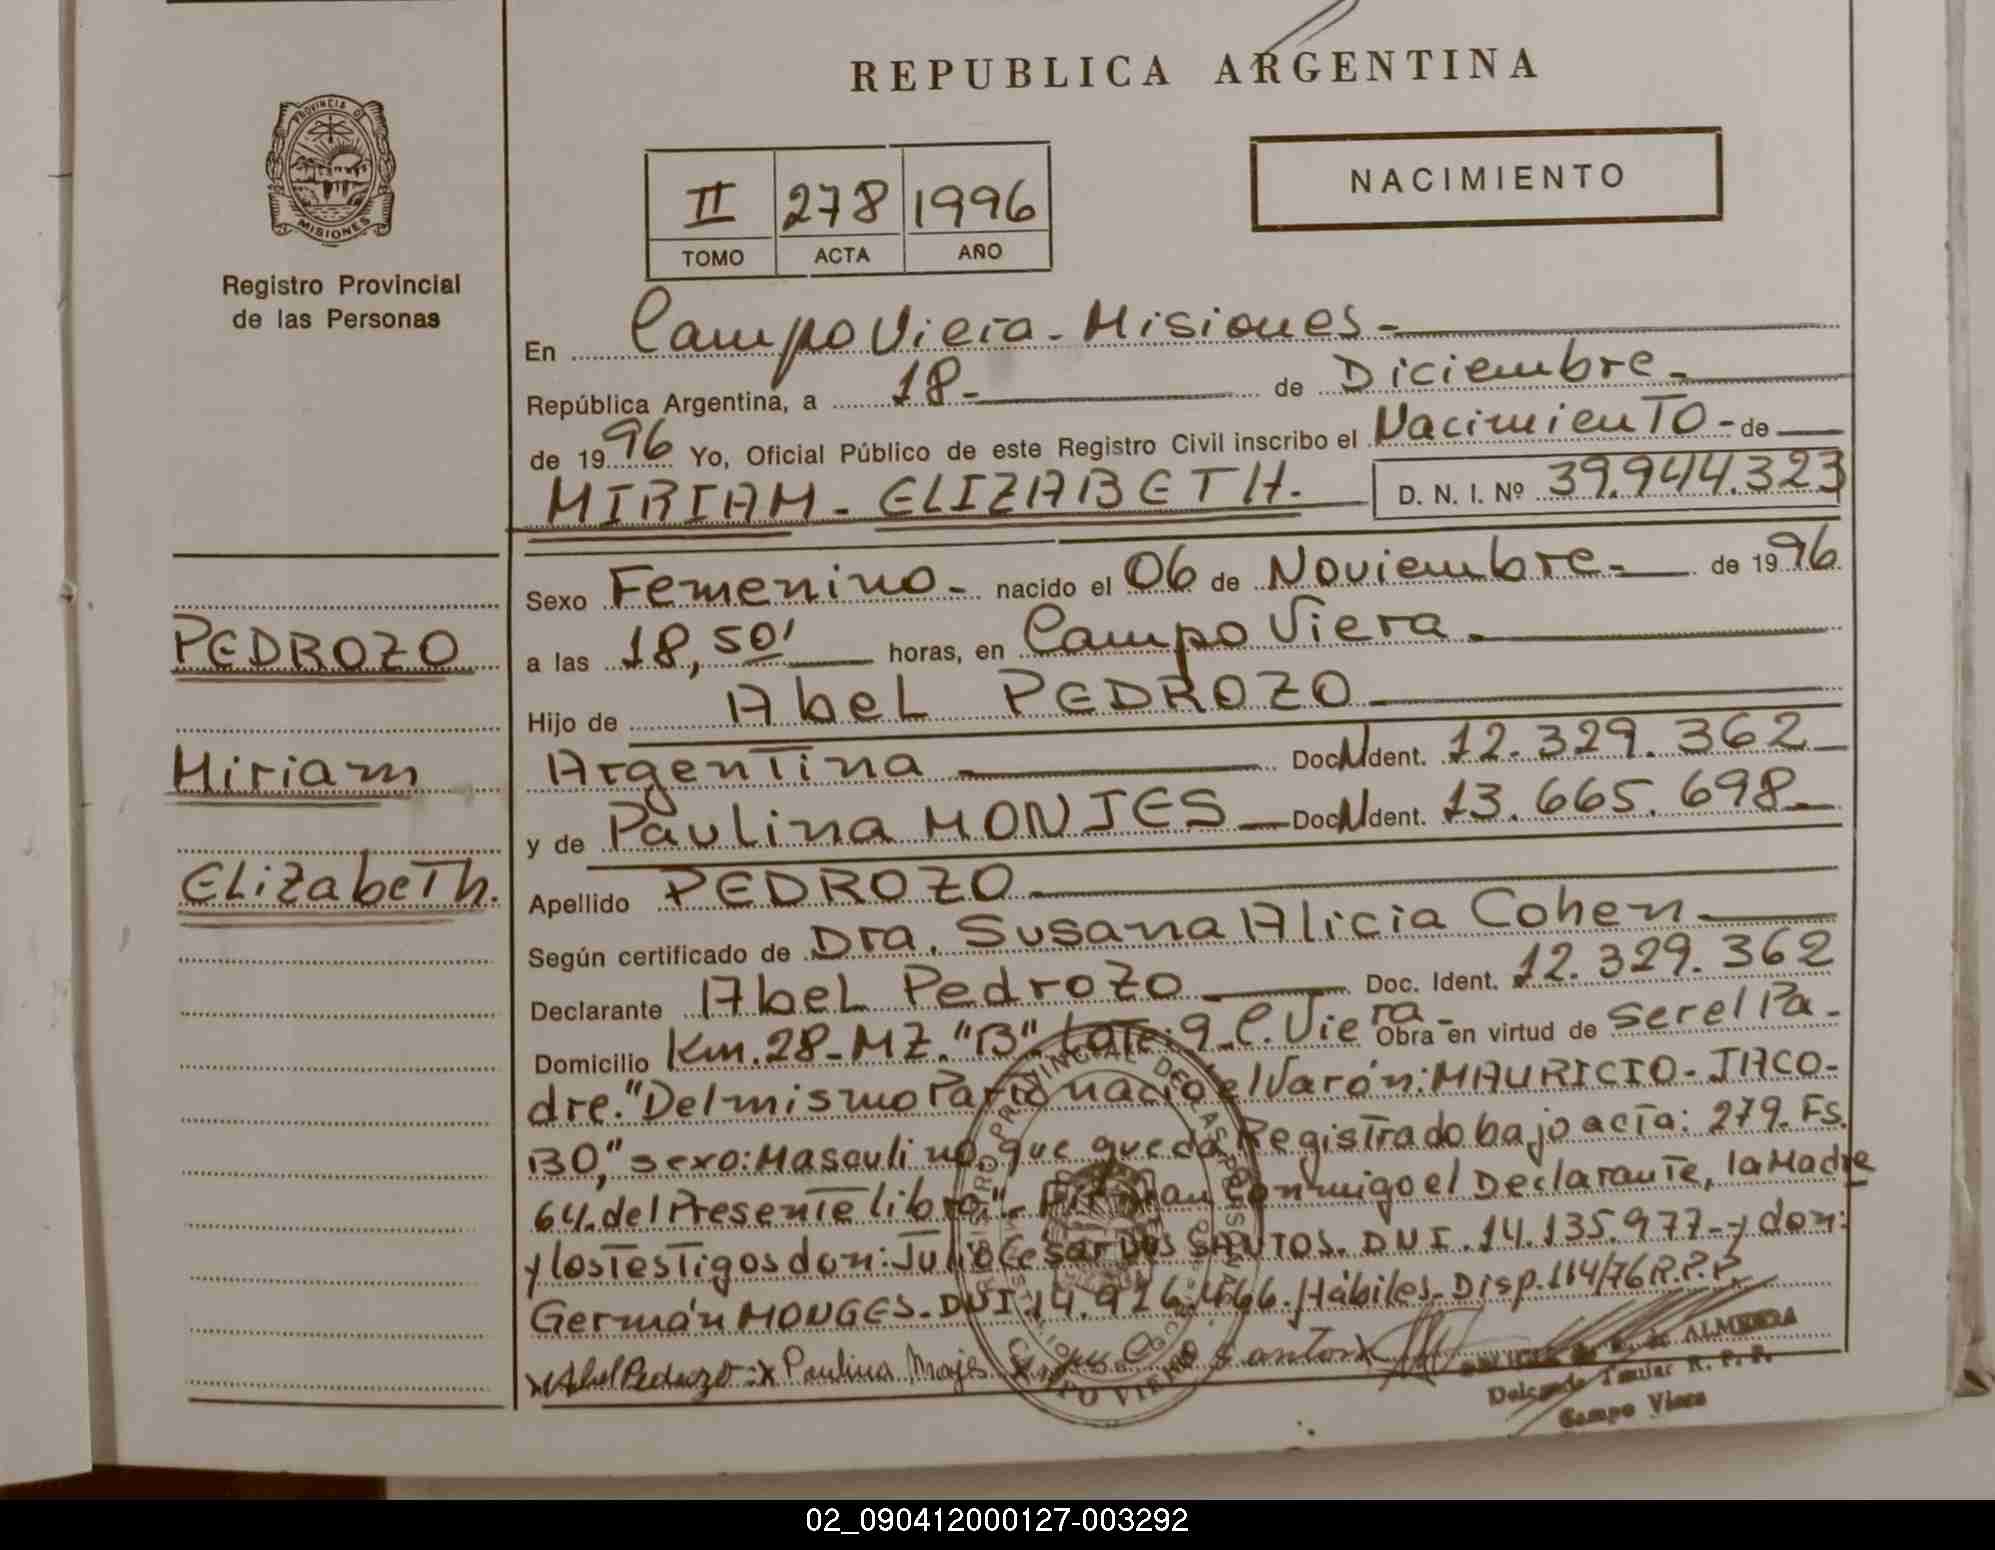 REPUBLICA ARGENTINA
PROVINCIA DE
MISIONES
Registro Provincial
de las Personas
II 278 1996
TOMO ACTA AÑO
NACIMIENTO
En Campo Viera - Misiones -
República Argentina, a 18 - de Diciembre -
de 1996 Yo, Oficial Público de este Registro Civil inscribo el Nacimiento - de
MIRIAM - ELIZABETH. D. N. I. Nº 39.944.323
Sexo Femenino - nacido el 06 de Noviembre - de 1996
a las 18,50' horas, en Campo Viera -
Hijo de Abel PEDROZO
Argentina Doc. Ident. 12.329.362
y de Paulina MONJES - Doc. Ident. 13.665.698 -
Apellido PEDROZO
Según certificado de Dra. Susana Alicia Cohen
Declarante Abel Pedrozo Doc. Ident. 12.329.362
Domicilio Km. 28 - MZ. "B" Lote: 9 - C. Viera - Obra en virtud de ser el Pa-
dre. "Del mismo Parto nació el Varón: MAURICIO - JACO-
BO," sexo: Masculino, que queda Registrado bajo acta: 279. Fs.
64. del Presente libro" - Firman Conmigo el Declarante, la Madre
y los Testigos don: Julio César DOS SANTOS. DNI. 14.135.977 - y don:
Germán MONGES - DNI 14.926.466. Hábiles - Disp. 114/76 R.P.P.
x Abel Pedrozo x Paulina Mojes x
PEDROZO
Miriam
Elizabeth.
de ALMEIDA
Delegada Titular R. P. P.
Campo Viera
02_090412000127-003292